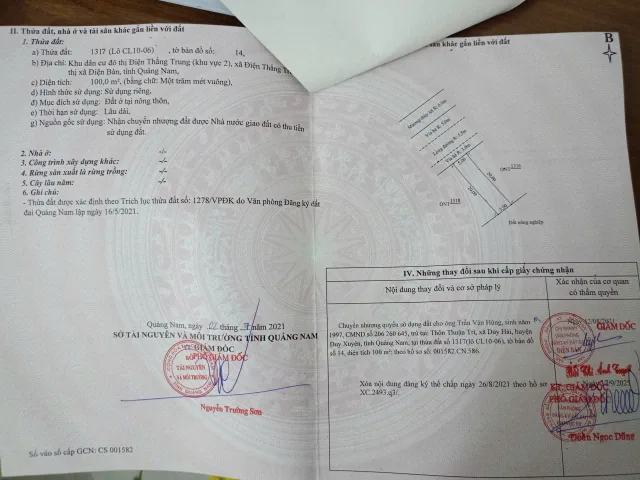 II. Thửa đất, nhà ở và tài sản khác gắn liền với đất
1. Thửa đất:
a) Thửa đất: 1317 (Lô CL10-06) , tờ bản đồ số: 14,
b) Địa chỉ: Khu dân cư đô thị Điện Thắng Trung (khu vực 2), xã Điện Thắng Tr
thị xã Điện Bàn, tỉnh Quảng Nam.
c) Diện tích: 100,0 m², (bằng chữ: Một trăm mét vuông),
d) Hình thức sử dụng: Sử dụng riêng,
đ) Mục đích sử dụng: Đất ở tại nông thôn,
e) Thời hạn sử dụng: Lâu dài,
g) Nguồn gốc sử dụng: Nhận chuyển nhượng đất được Nhà nước giao đất có thu tiền
sử dụng đất.
2. Nhà ở: -/-
3. Công trình xây dựng khác: -/-
4. Rừng sản xuất là rừng trồng: -/-
5. Cây lâu năm: -/-
6. Ghi chú:
- Thửa đất được xác định theo Trích lục thửa đất số: 1278/VPĐK do Văn phòng Đăng ký đất
đai Quảng Nam lập ngày 16/5/2021.
Quảng Nam, ngày 02 tháng 7 năm 2021
SỞ TÀI NGUYÊN VÀ MÔI TRƯỜNG TỈNH QUẢNG NAM
GIÁM ĐỐC
PHÓ GIÁM ĐỐC
SỞ
TÀI NGUYÊN
VÀ MÔI TRƯỜNG
Nguyễn Trường Sơn
Số vào sổ cấp GCN: CS 001582
sản khác gắn liền với đất
B
Vỉa hè R.
Lòng đường R.
Vỉa hè R.
5.00
20.00
20.00
5.00
ONT
1318
ONT
Đất nông nghiệp
IV. Những thay đổi sau khi cấp giấy chứng nhận
Nội dung thay đổi và cơ sở pháp lý
Xác nhận của cơ quan
có thẩm quyền
Chuyển nhượng quyền sử dụng đất cho ông Trần Văn Hùng, sinh năm
1997, CMND số 206 260 645, cư trú tại: Thôn Thuận Trì, xã Duy Hải, huyện
Duy Xuyên, tỉnh Quảng Nam, tại thửa đất số 1317(lô CL.10-06), tờ bản đồ
số 14, diện tích 100 m² theo hồ sơ số: 001582.CN.586.
GIÁM ĐỐC
ĐIỆN BÀN
Xóa nội dung đăng ký thế chấp ngày 26/8/2021 theo hồ sơ
XC.2493.q3/.
KT. GIÁM ĐỐC
PHÓ GIÁM ĐỐC
Đoàn Ngọc Dũng